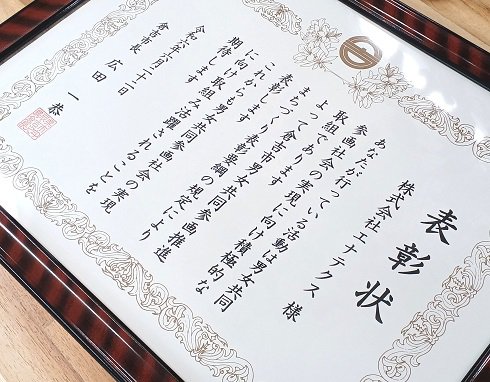 表彰状
株式会社エナテクス 様
あなたが行っている活動は男女共同
参画社会の実現に向け積極的な
取組であります
よって倉吉市男女共同参画推進
まちづくり表彰要綱の規定により
表彰します
これからも男女共同参画社会の実現
に向け取組み活躍されることを
期待します
令和六年六月二十二日
倉吉市長 広田一恭